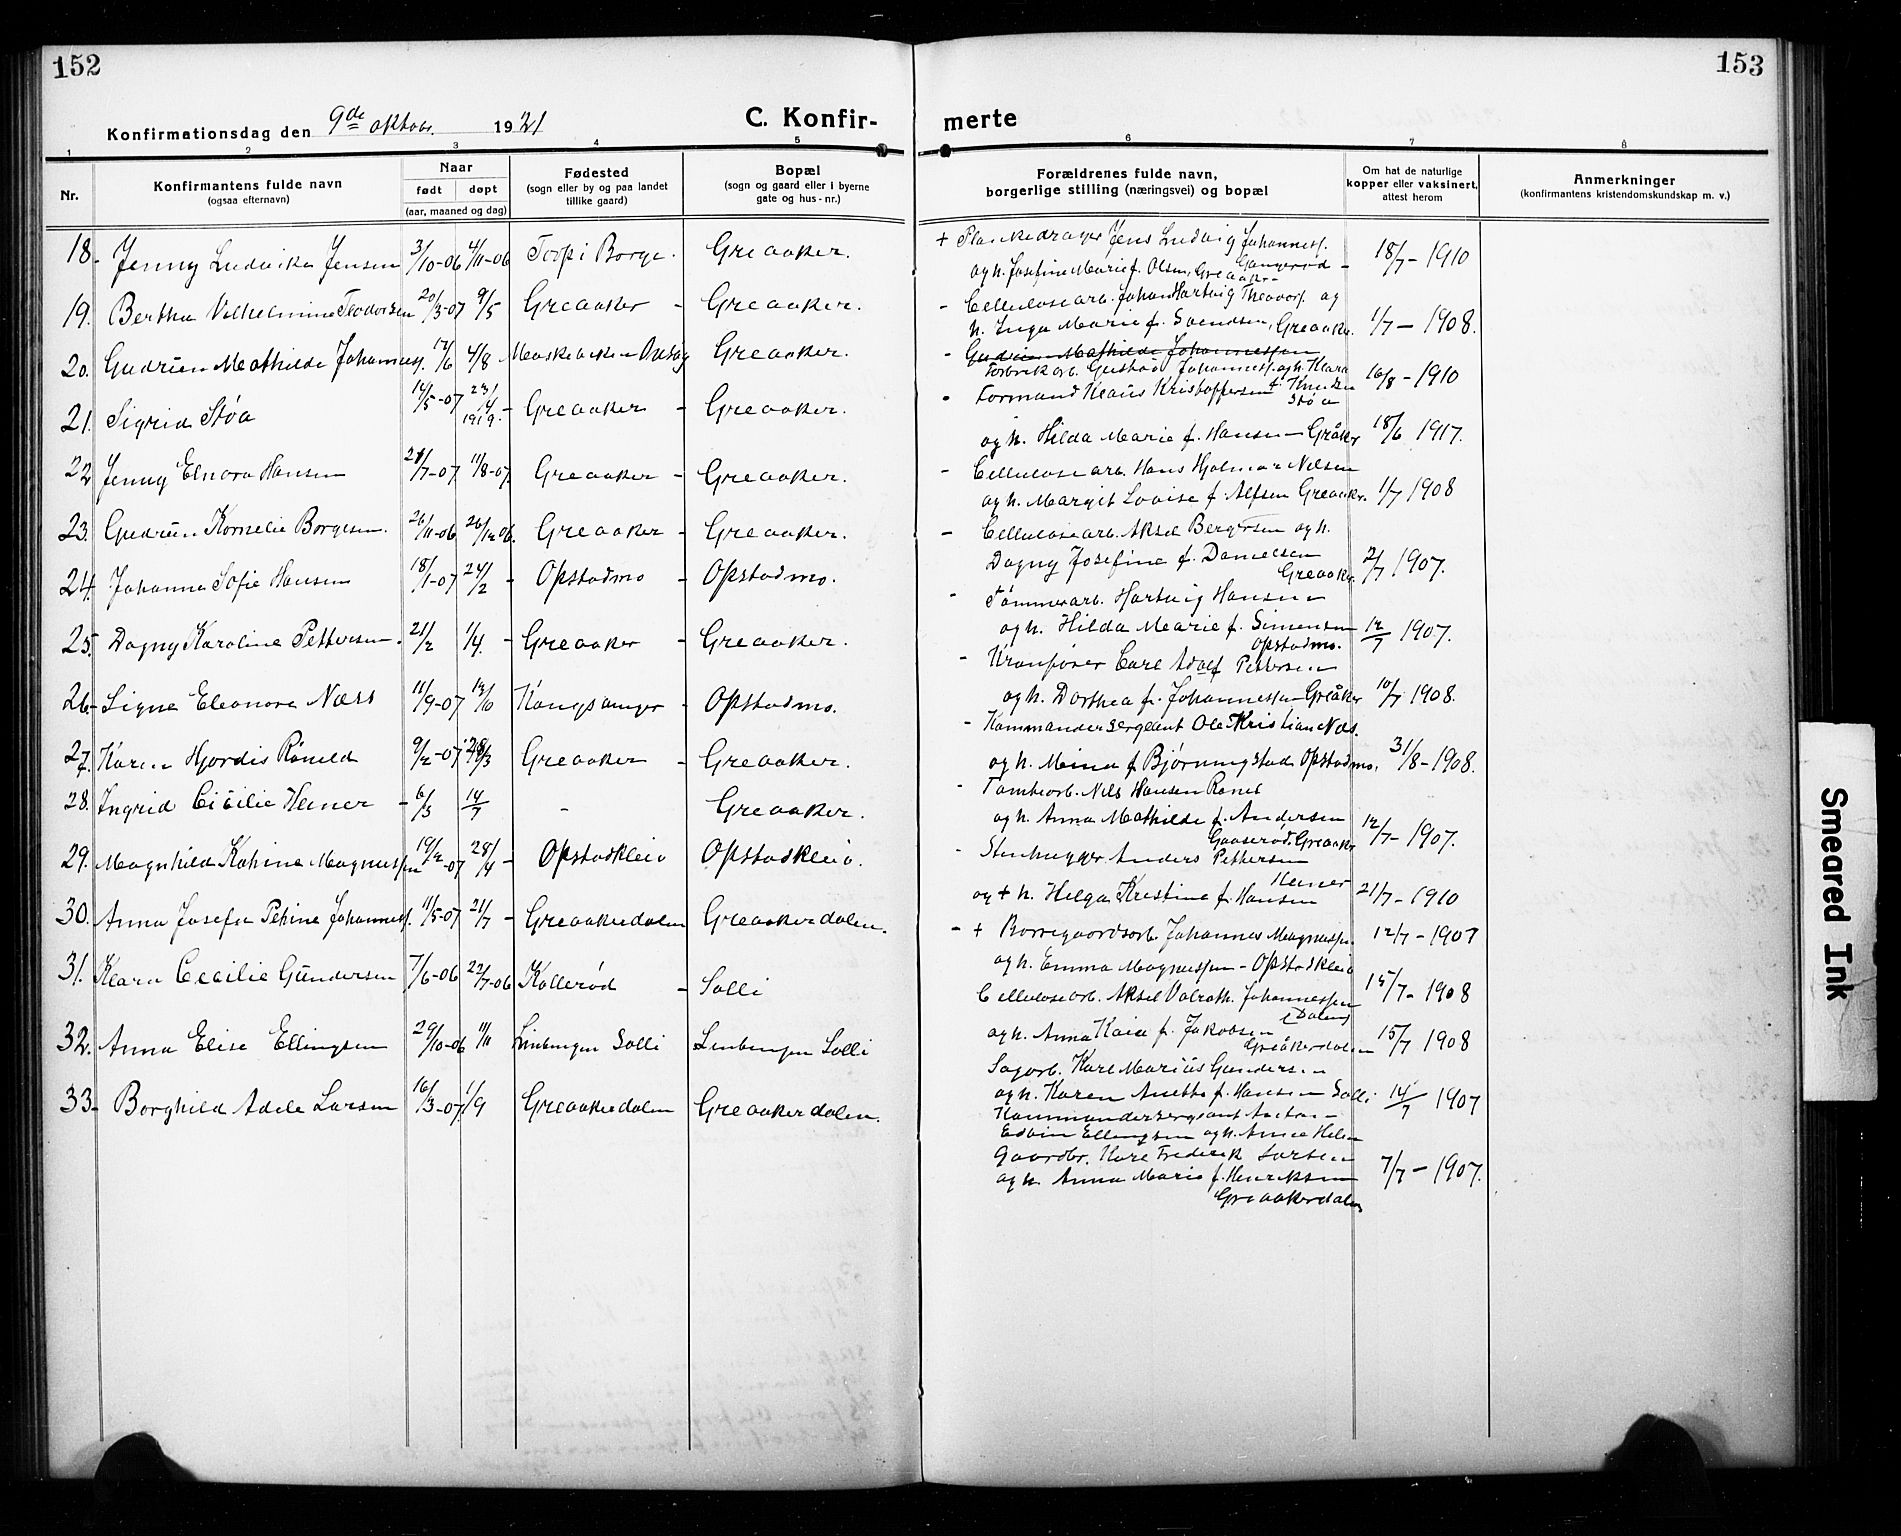 152
Konfirmationsdag den 9de oktobr. 1921
C. Konfir-
1 2 3 4 5
Nr.
Konfirmantens fulde navn
(ogsaa efternavn)
Naar
født døpt
(aar, maaned og dag)
Fødested
(sogn eller by og paa landet
tillike gaard)
Bopæl
(sogn og gaard eller i byerne
gate og hus-nr.)
18. Jenny Ludvika Jensen 3/10-06 4/11-06 Torp i Borge. Greaaker.
19. Bertha Vilhelmine Teodorsen 20/3-07 9/5 Greaaker - Greaaker.
20. Gudrun Mathilde Johanness. 12/6 4/8 Greaaker.
21. Sigrid Støa 14/5-07 23/4 1919. - Greaaker - Greaaker.
22 Jenny Elnora Hansen 21/7-07 11/8-07 Greaaker - Greaaker.
23. Gudrun Kornelie Borgesen. 26/11-06 26/12 06. Greaaker - Greaaker.
24. Johanna Sofie Hansen 18/1-07 24/2 - Opstadmo - Opstadmo.
25. Dagny Karoline Pettersen. 21/2 1/4. - Greaaker - Greaaker.
26. Signe Eleonora Næss 11/9-07 13/10 Kongsvinger - Opstadmo.
27. Karen Hjordis Röneld 9/2-07 28/3 Greaaker - Greaaker.
28. Ingrid Cicilie Heiner - 6/3 14/7 - Greaaker.
29. Magnhild Katrine Magnussen 19/2-07 28/4 - Opstadkleiv Opstadkleiv.
30. Anna Josefa Petrine Johanness. 11/5-07 21/7 - Greaakerdalen Greaakerdalen.
31. Klara Cecilie Gundersen 7/6-06 22/7-06 Kollerød - Solli
32. Anna Elise Ellingsen 29/10-06 11/11 Solli Solli
33- Borghild Adele Larsen 16/3-07. 1/9 Greaakerdalen Greaakerdalen.
153
merte
6 7 8
Forældrenes fulde navn,
borgerlige stilling (næringsvei) og bopæl
Om hat de naturlige
kopper eller vaksinert,
attest herom
Anmerkninger
(konfirmantens kristendomskundskap m. v.)
+ Plankedrager Jens Ludvig Johanness.
og h. Josefine Marie f. Olsen, Greaaker- 18/7-1910
- Cellulosearb. Johan Hartvig Theodors. og
h. Inga Marie f. Svendsen, Greaaker. 1/7-1908.
- Gudrun Mathilde Johannessen
Fabrikarb. Gustav Johanness. og h. Klara
f. Knudsen 16/8-1910
- Formand Klaus Kristoffersen Støa
og h. Hilda Marie f. Hansen Gråker 18/6 1917.
- Cellulosearb. Hans Hjalmar Nilsen
og h. Margit Lovise f. Alfsen Greaaker. 1/7 1908
- Cellulosearb. Aksel Bergersen og h.
Dagny Josefine f. Danielsen
Greaaker. 2/7 1907.
- Tømmerarb. Hartvig Hansen
og h. Hilda Marie f. Simensen
Opstadmo. 12/7 1907.
- Kranfører Carl Adolf Pettersen
og h. Dorthea f. Johannessen Greåker 10/7 1908.
- Kommandersergeant Ole Kristian Næs.
og h. Mina f Bjørnungstad Opstadmo. 31/8-1908.
- Tomtearb. Nils Hansen Röneld
og h. Anna Mathilde f. Andersen
Gaaserød. Greaaker 12/7-1907.
- Stenhugger Anders Pettersen
Heiner
og + h. Helga Kristine f. Hansen 21/7-1910
- + Borregaardsarb. Johannes Magnussen. 12/7-1907
og h. Emma Magnussen - Opstadkleiv
Cellulosearb. Aksel Valrath. Johannessen 15/7-1908
og h. Anna Kaia f. Jakobsen
Greåkerdalen 15/7 1908
Sagarb. Karl Marius Gundersen
og h. Karen Anette f. Hansen Solli 14/7 1907
Kommandersergeant Anton
Edvin Ellingsen og h.
Gaardbr. Karl Frederik Larsen
og h. Anna Marie f. Henriksen 7/7-1907.
Greaakerdalen
Smeared Ink